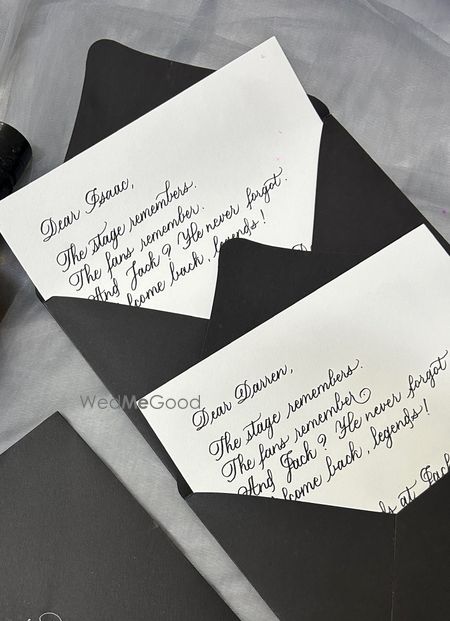 Dear Isaac,
The stage remembers.
The fans remember.
And Jack? He never forgot.
come back, legends!
WedMeGood
Dear Darren,
The stage remembers.
The fans remember
And Jack? He never forgot
come back, legends!
at